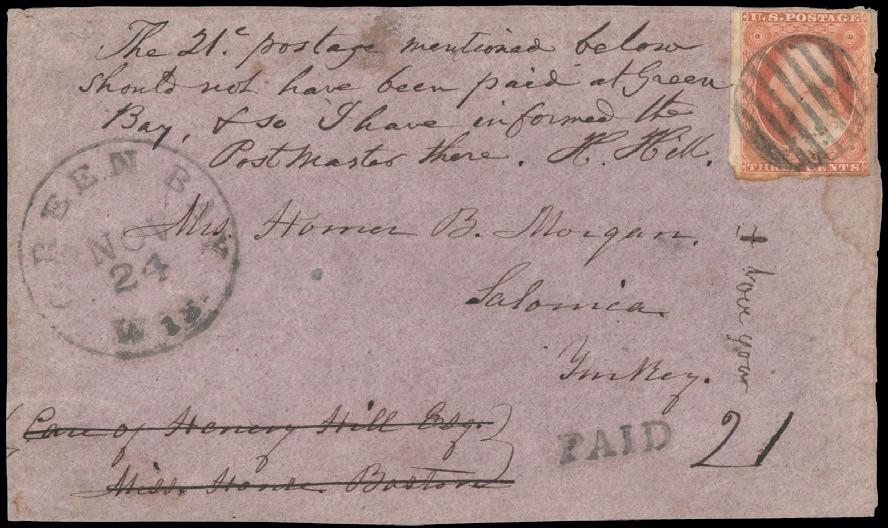 The 21c. postage mentioned below
should not have been paid at Green
Bay, & so I have informed the
PostMaster there. H. Hill.
U.S. POSTAGE
THREE CENTS
GREEN BAY
NOV
24
Wis.
Mrs. Homer B. Morgan.
Salonica.
Turkey.
Care of Henry Hill Esq.
Miss. House. Boston
PAID
21